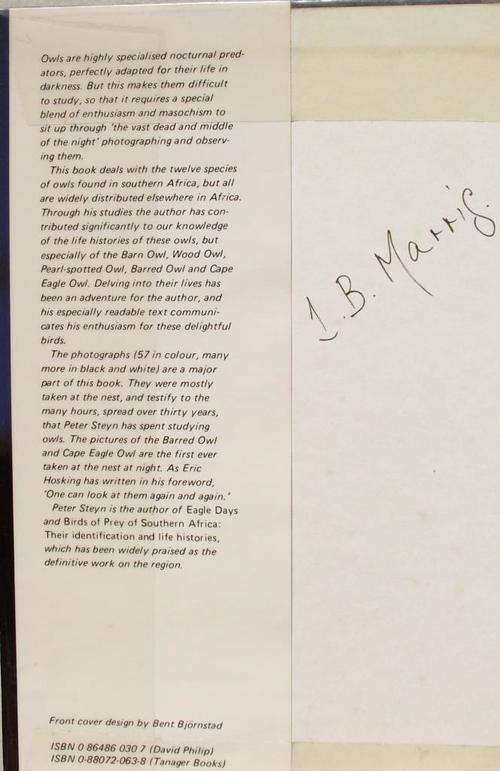 Owls are highly specialised nocturnal pred-
ators, perfectly adapted for their life in
darkness. But this makes them difficult
to study, so that it requires a special
blend of enthusiasm and masochism to
sit up through 'the vast dead and middle
of the night' photographing and observ-
ing them.
This book deals with the twelve species
of owls found in southern Africa, but all
are widely distributed elsewhere in Africa.
Through his studies the author has con-
tributed significantly to our knowledge
of the life histories of these owls, but
especially of the Barn Owl, Wood Owl,
Pearl-spotted Owl, Barred Owl and Cape
Eagle Owl. Delving into their lives has
been an adventure for the author, and
his especially readable text communi-
cates his enthusiasm for these delightful
birds.
The photographs (57 in colour, many
more in black and white) are a major
part of this book. They were mostly
taken at the nest, and testify to the
many hours, spread over thirty years,
that Peter Steyn has spent studying
owls. The pictures of the Barred Owl
and Cape Eagle Owl are the first ever
taken at the nest at night. As Eric
Hosking has written in his foreword,
'One can look at them again and again.'
Peter Steyn is the author of Eagle Days
and Birds of Prey of Southern Africa:
Their identification and life histories,
which has been widely praised as the
definitive work on the region.
Front cover design by Bent Björnstad
ISBN 0 86486 030 7 (David Philip)
ISBN 0-88072-063-8 (Tanager Books)
B. Marris.